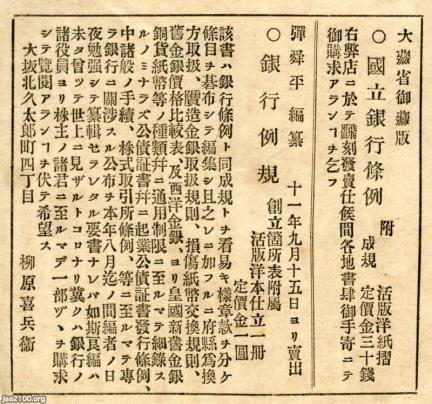 大藏省御藏版
○國立銀行條例 附成規 活版洋紙摺 定價金三十錢
右弊店ニ於テ飜刻發賣仕候間各地書肆御手寄ニテ
御購求アランヿヲ乞フ
彈舜平編纂 十一年九月十五日ヨリ賣出
○銀行例規 創立箇所表附屬 活版洋本仕立一冊 定價金一圓
該書ハ銀行條例ト同成規トヲ看易キ樣章款ヲ分ケ
條目ヲ碁布シテ編集シ且之レニ加フルニ府縣爲換
方取扱、贋造金銀取扱規則、損傷紙幣交換規則、
舊金銀價格比較表、及西洋金銀、ヨリ皇國新舊金銀
銅貨紙幣等ノ種類幷ニ通用制限ニ至ルマテ細錄ス
ルノミナラズ公債証書幷ニ起業公債証書發行條例、
中諸般ノ手續、株式取引所條例、等ニ至ルマテ專
ラ銀行ニ關渉スル公布ヲ本年八月迄ノ間編者ノ日
夜勉强シテ纂輯セラレタル要書ナレバ如斯良編ハ
未タ曾ツテ世上ニ見ザルトコロナリ冀クハ銀行ノ
諸役員ヨリ株主ノ諸君ニ至ルマデ一部ヅヽヲ購求
シテ覽閱アランヿヲ伏テ希望ス
大坂北久太郎町四丁目 柳原喜兵衞
jaa2100.org